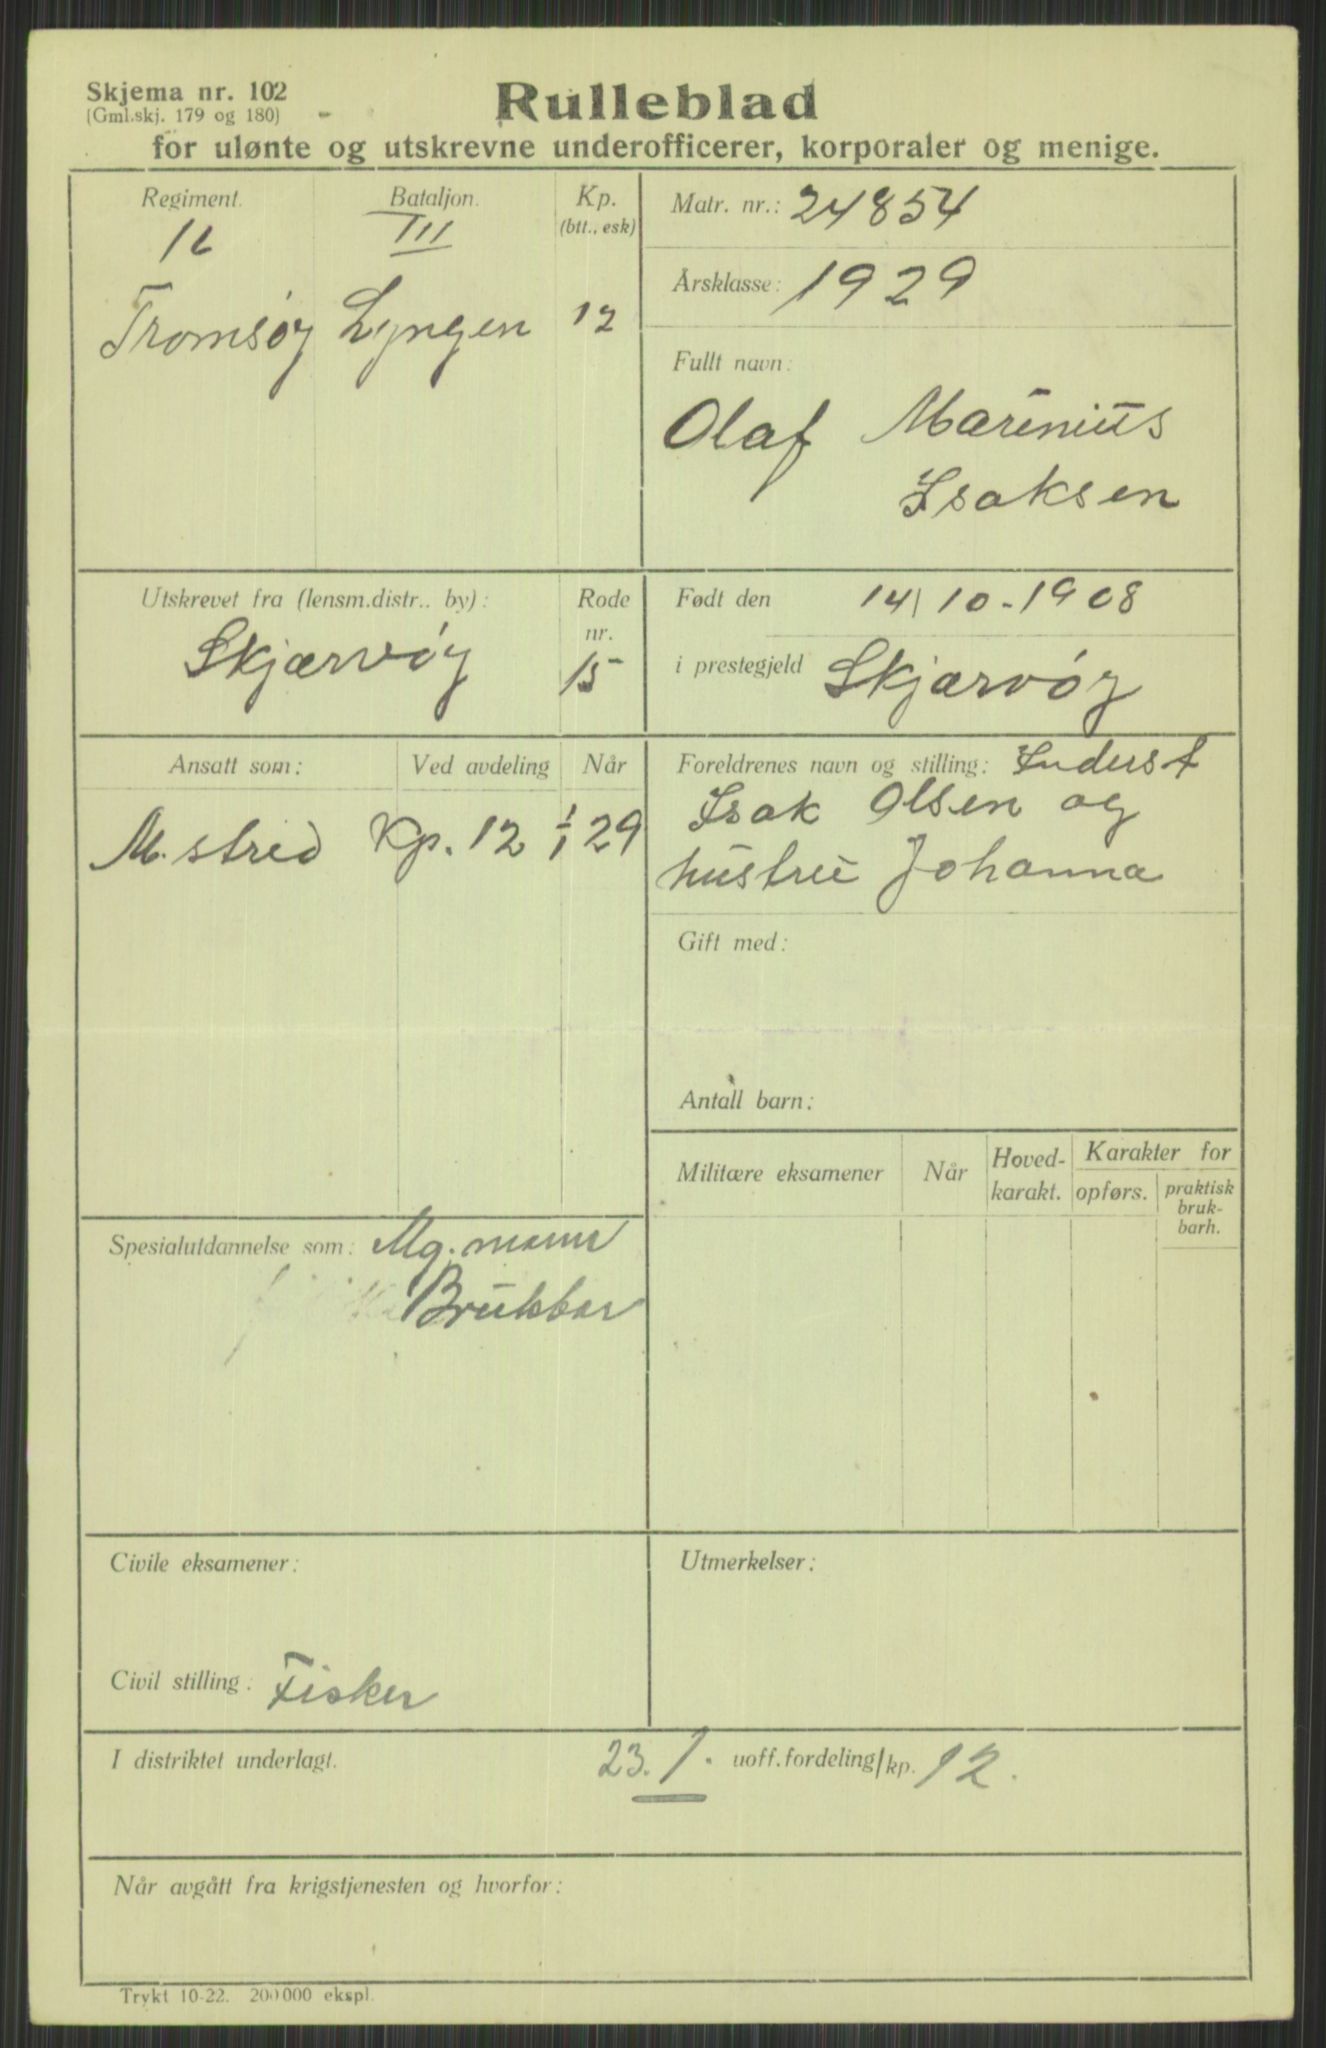 Skjema nr. 102
(Gml.skj. 179 og 180)
Rulleblad
for ulønte og utskrevne underofficerer, korporaler og menige.
Regiment.
Bataljon.
Kp.
(btt., esk)
16
III
Tromsøy
Lyngen
12
Matr. nr.: 24854
Årsklasse: 1929
Fullt navn:
Olaf Marenius
Isaksen
Utskrevet fra (lensm.distr.. by):
Skjærvøy
Rode
nr.
15
Født den 14/10-1908
i prestegjeld Skjærvøy
Ansatt som:
Ved avdeling
Når
M. strid Kp. 12 1/1 29
Foreldrenes navn og stilling: Inderst
Isak Olsen og
hustru Johanna
Gift med:
Antall barn:
Militære eksamener
Når
Hoved-
karakt.
Karakter for
opførs.
praktisk
bruk-
barh.
Spesialutdannelse som: Mg. mann
Brukbar
Civile eksamener:
Utmerkelser:
Civil stilling: Fisker
I distriktet underlagt. 23. 1. uoff.fordeling/kp. 12.
Når avgått fra krigstjenesten og hvorfor:
Trykt 10-22. 200000 ekspl.